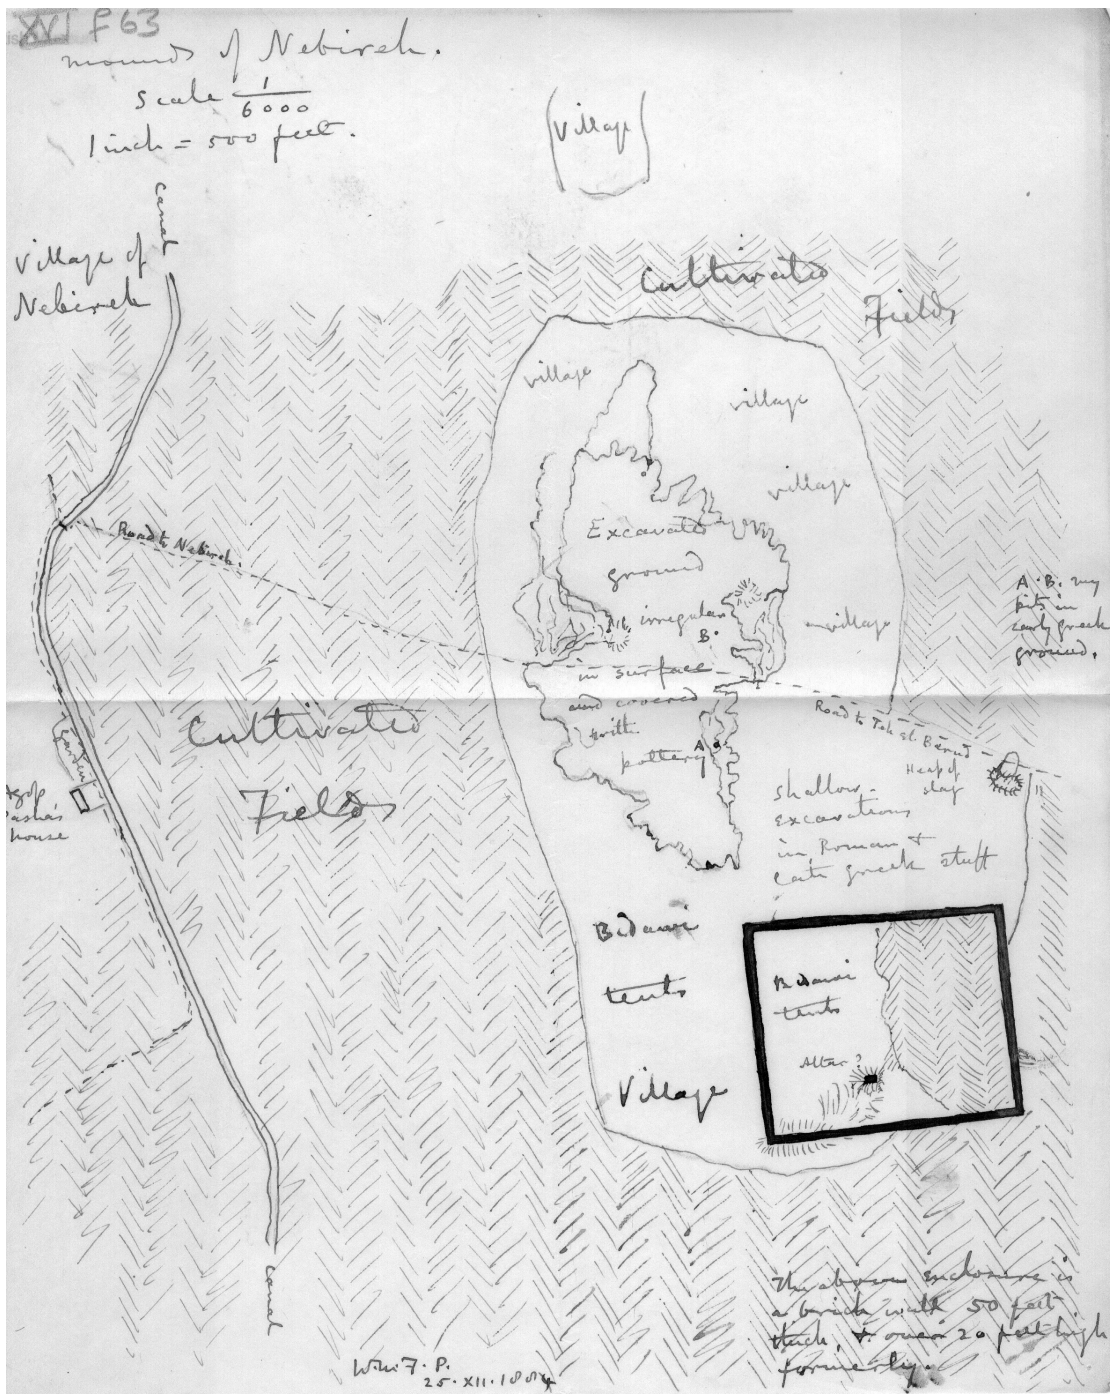 XVI f 63
mounds of Nebireh.
Scale 1/6000
1 inch = 500 feet.
(Village)
Canal
Village of
Nebireh
Cultivated
Fields
village
village
village
Excavated
ground
irregular
B.
in surface
and covered
with
pottery
A
village
A. B. my
pits in
early greek
ground.
Road to Nebireh.
Road to Teh el Barud
Heap of
slag
Cultivated
Fields
garden
Pasha's
house
shallow
excavations
in Roman +
late greek stuff
Bedawi
tents
Village
Bedawi
tents
Altar?
Canal
The above enclosure is
a brick wall 50 feet
thick, & over 20 feet high
formerly.
W.M.F.P.
25.XII.1884